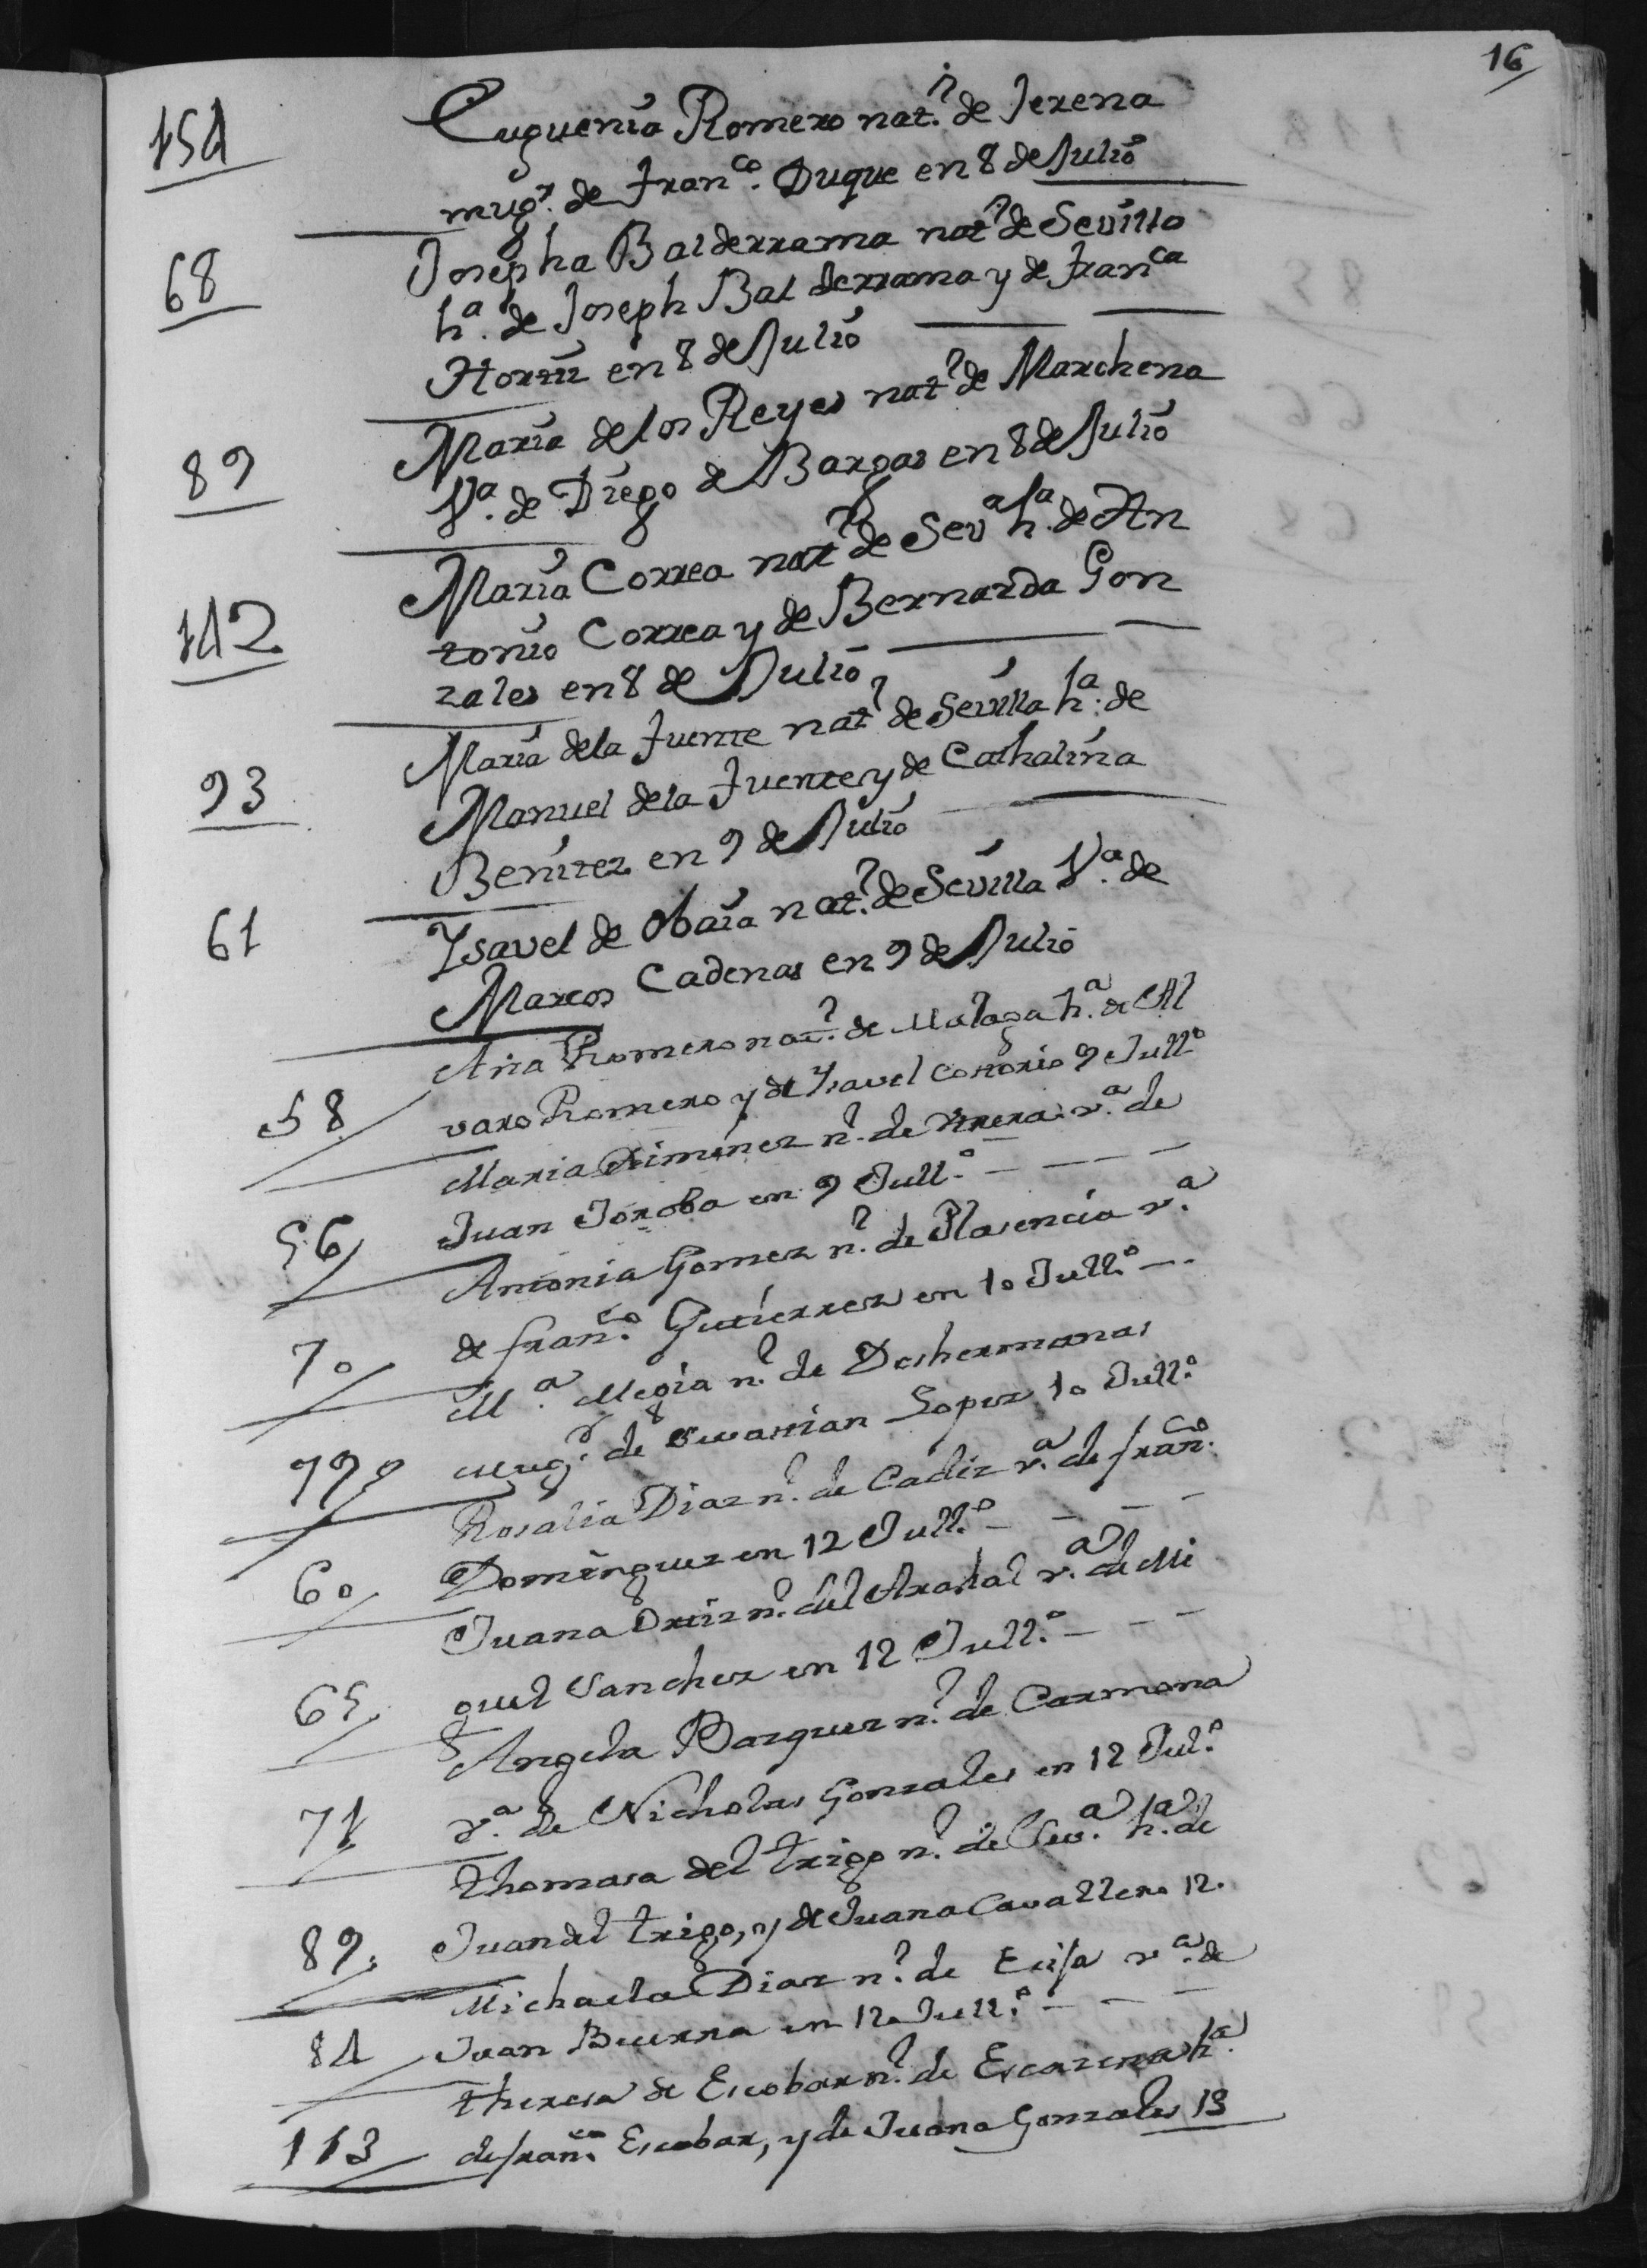 16
154 Euguenia Romero nat.l de Jerena
mugr. de Franco. Duque en 8 de Julio
68 Josepha Balderrama natl de Sevilla
ha. de Joseph Balderrama y de Franca
Hortiz en 8 de Julio
89 Maria de los Reyes natl de Marchena
Va. de Diego de Bargas en 8 de Julio
142 Maria Correa natl de Seva ha. de An
tonio Correa y de Bernarda Gon
zales en 8 de Julio
93 Maria de la Fuente natl de Sevilla ha. de
Manuel de la Fuente y de Cathalina
Benitez en 9 de Julio
61 Ysavel de Obaia nat.l de Sevilla Va. de
Marcos Cadenas en 9 de Julio
58 Ana Romero nat.l de Malaga ha. de Al
varo Romero y de Ysavel 9 Jullo
56 Maria Ximinez n.l de Utrera va. de
Juan Joroba en 9 Jull.o
70 Antonia Gomez n.l de Plasencia va.
de franco. Gutierrez en 10 Jull.o
79 Ma. Megia n.l de Doshermanas
Mugr. de Sevastian Lopez 10 Jull.o
60 Rosalia Diaz n.l de Cadiz va. de franco.
Dominguez en 12 Jull.o
65 Juana Ortiz n.l del Arahal va. de Mi
guel Sanchez en 12 Jull.o
71 Angela Bazquez n.l de Carmona
va. de Nicholas Gonzales en 12 Jul.o
89. Thomasa del Trigo n.l de Seva. ha. de
Juan del Trigo, y de Juana Cavallero 12.
84 Michaela Diaz n.l de Ecija va. de
Juan Becerra en 12 Jull.o
113 Theresa de Escobar n.l de Escazena ha.
de franco. Escobar, y de Juana Gonzales 13